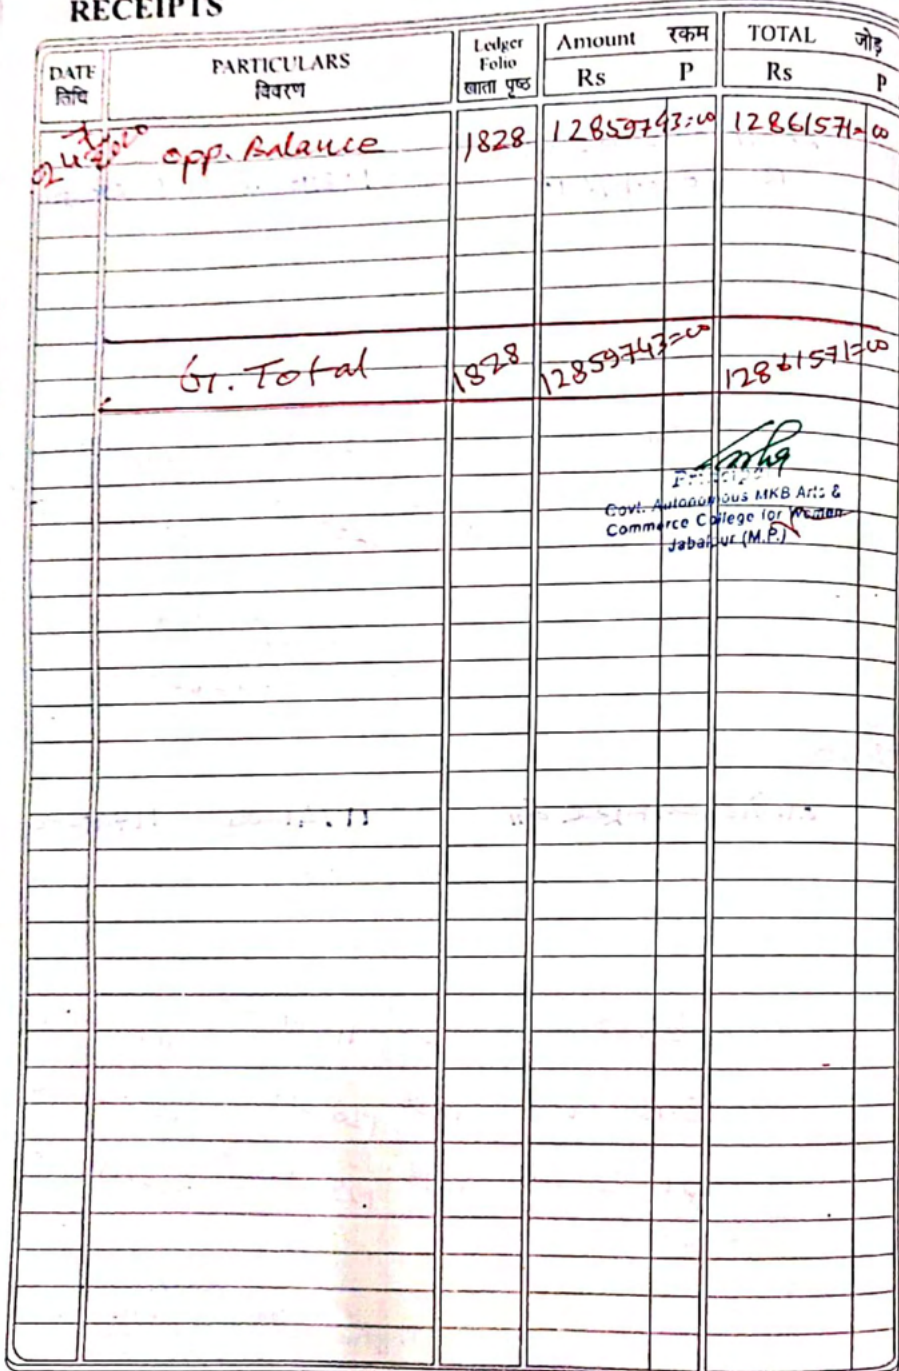 RECEIPTS
DATE तिथि PARTICULARS विवरण Ledger Folio खाता पृष्ठ Amount रकम Rs P TOTAL जोड़ Rs P
opp. Balance 1828 12859743=00 12861571=00
G. Total 1828 12859743=00 12861571=00
Principal
Govt. Autonomous MKB Arts &
Commerce College for Women
Jabalpur (M.P.)